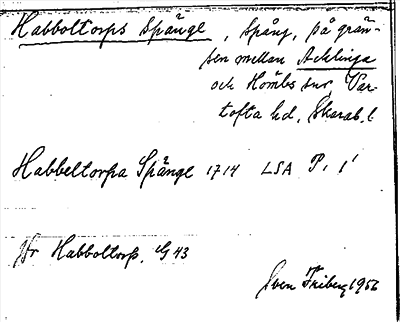 Habboltorps Spänge, spång, på grän-
sen mellan Acklinga
och Hömbs snr, Var-
tofta hd, Skarab. l
Habbeltorpa Spänge 1714 LSA P. 1¹
Jfr Habboltorp, G 43
Sven Friberg 1956